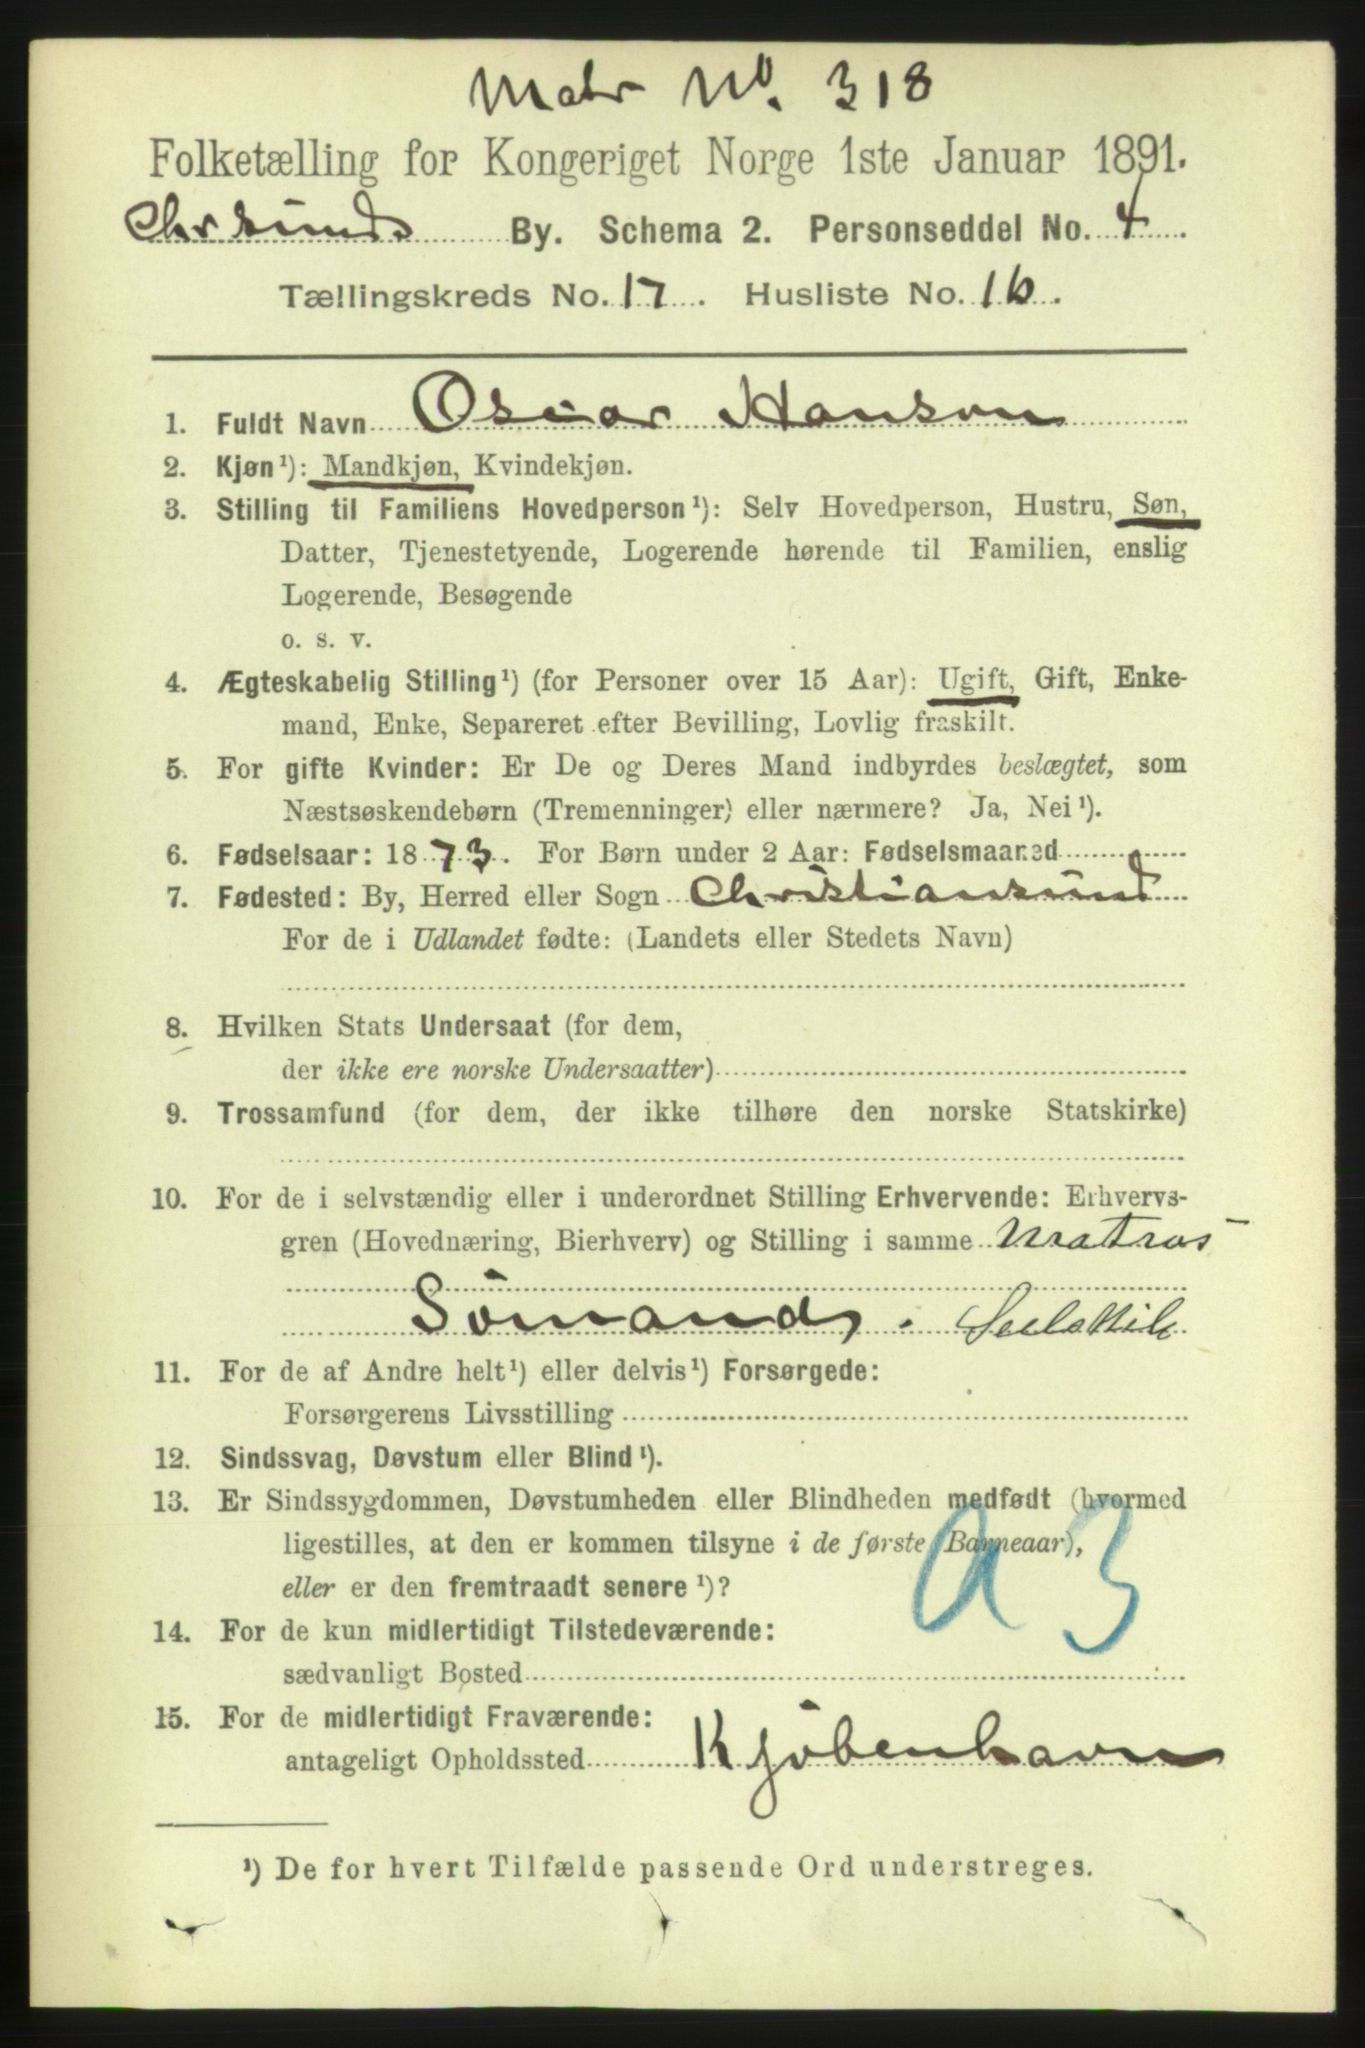 Matr No. 318
Folketælling for Kongeriget Norge 1ste Januar 1891.
Chrsunds By. Schema 2. Personseddel No. 4.
Tællingskreds No. 17. Husliste No. 16.
1. Fuldt Navn Oscar Hansen
2. Kjøn¹): Mandkjøn, Kvindekjøn.
3. Stilling til Familiens Hovedperson¹): Selv Hovedperson, Hustru, Søn,
Datter, Tjenestetyende, Logerende hørende til Familien, enslig
Logerende, Besøgende
o. s. v.
4. Ægteskabelig Stilling¹) (for Personer over 15 Aar): Ugift, Gift, Enke-
mand, Enke, Separeret efter Bevilling, Lovlig fraskilt.
5. For gifte Kvinder: Er De og Deres Mand indbyrdes beslægtet, som
Næstsøskendebørn (Tremenninger) eller nærmere? Ja, Nei¹).
6. Fødselsaar: 1873. For Børn under 2 Aar: Fødselsmaaned
7. Fødested: By, Herred eller Sogn Christiansund
For de i Udlandet fødte: (Landets eller Stedets Navn)
8. Hvilken Stats Undersaat (for dem,
der ikke ere norske Undersaatter)
9. Trossamfund (for dem, der ikke tilhøre den norske Statskirke)
10. For de i selvstændig eller i underordnet Stilling Erhvervende: Erhvervs-
gren (Hovednæring, Bierhverv) og Stilling i samme Matros
Sömand.
11. For de af Andre helt¹) eller delvis¹) Forsørgede:
Forsørgerens Livsstilling
12. Sindssvag, Døvstum eller Blind¹).
13. Er Sindssygdommen, Døvstumheden eller Blindheden medfødt (hvormed
ligestilles, at den er kommen tilsyne i de første Barneaar),
eller er den fremtraadt senere¹)?
a 3
14. For de kun midlertidigt Tilstedeværende:
sædvanligt Bosted
15. For de midlertidigt Fraværende:
antageligt Opholdssted Kjöbenhavn
¹) De for hvert Tilfælde passende Ord understreges.